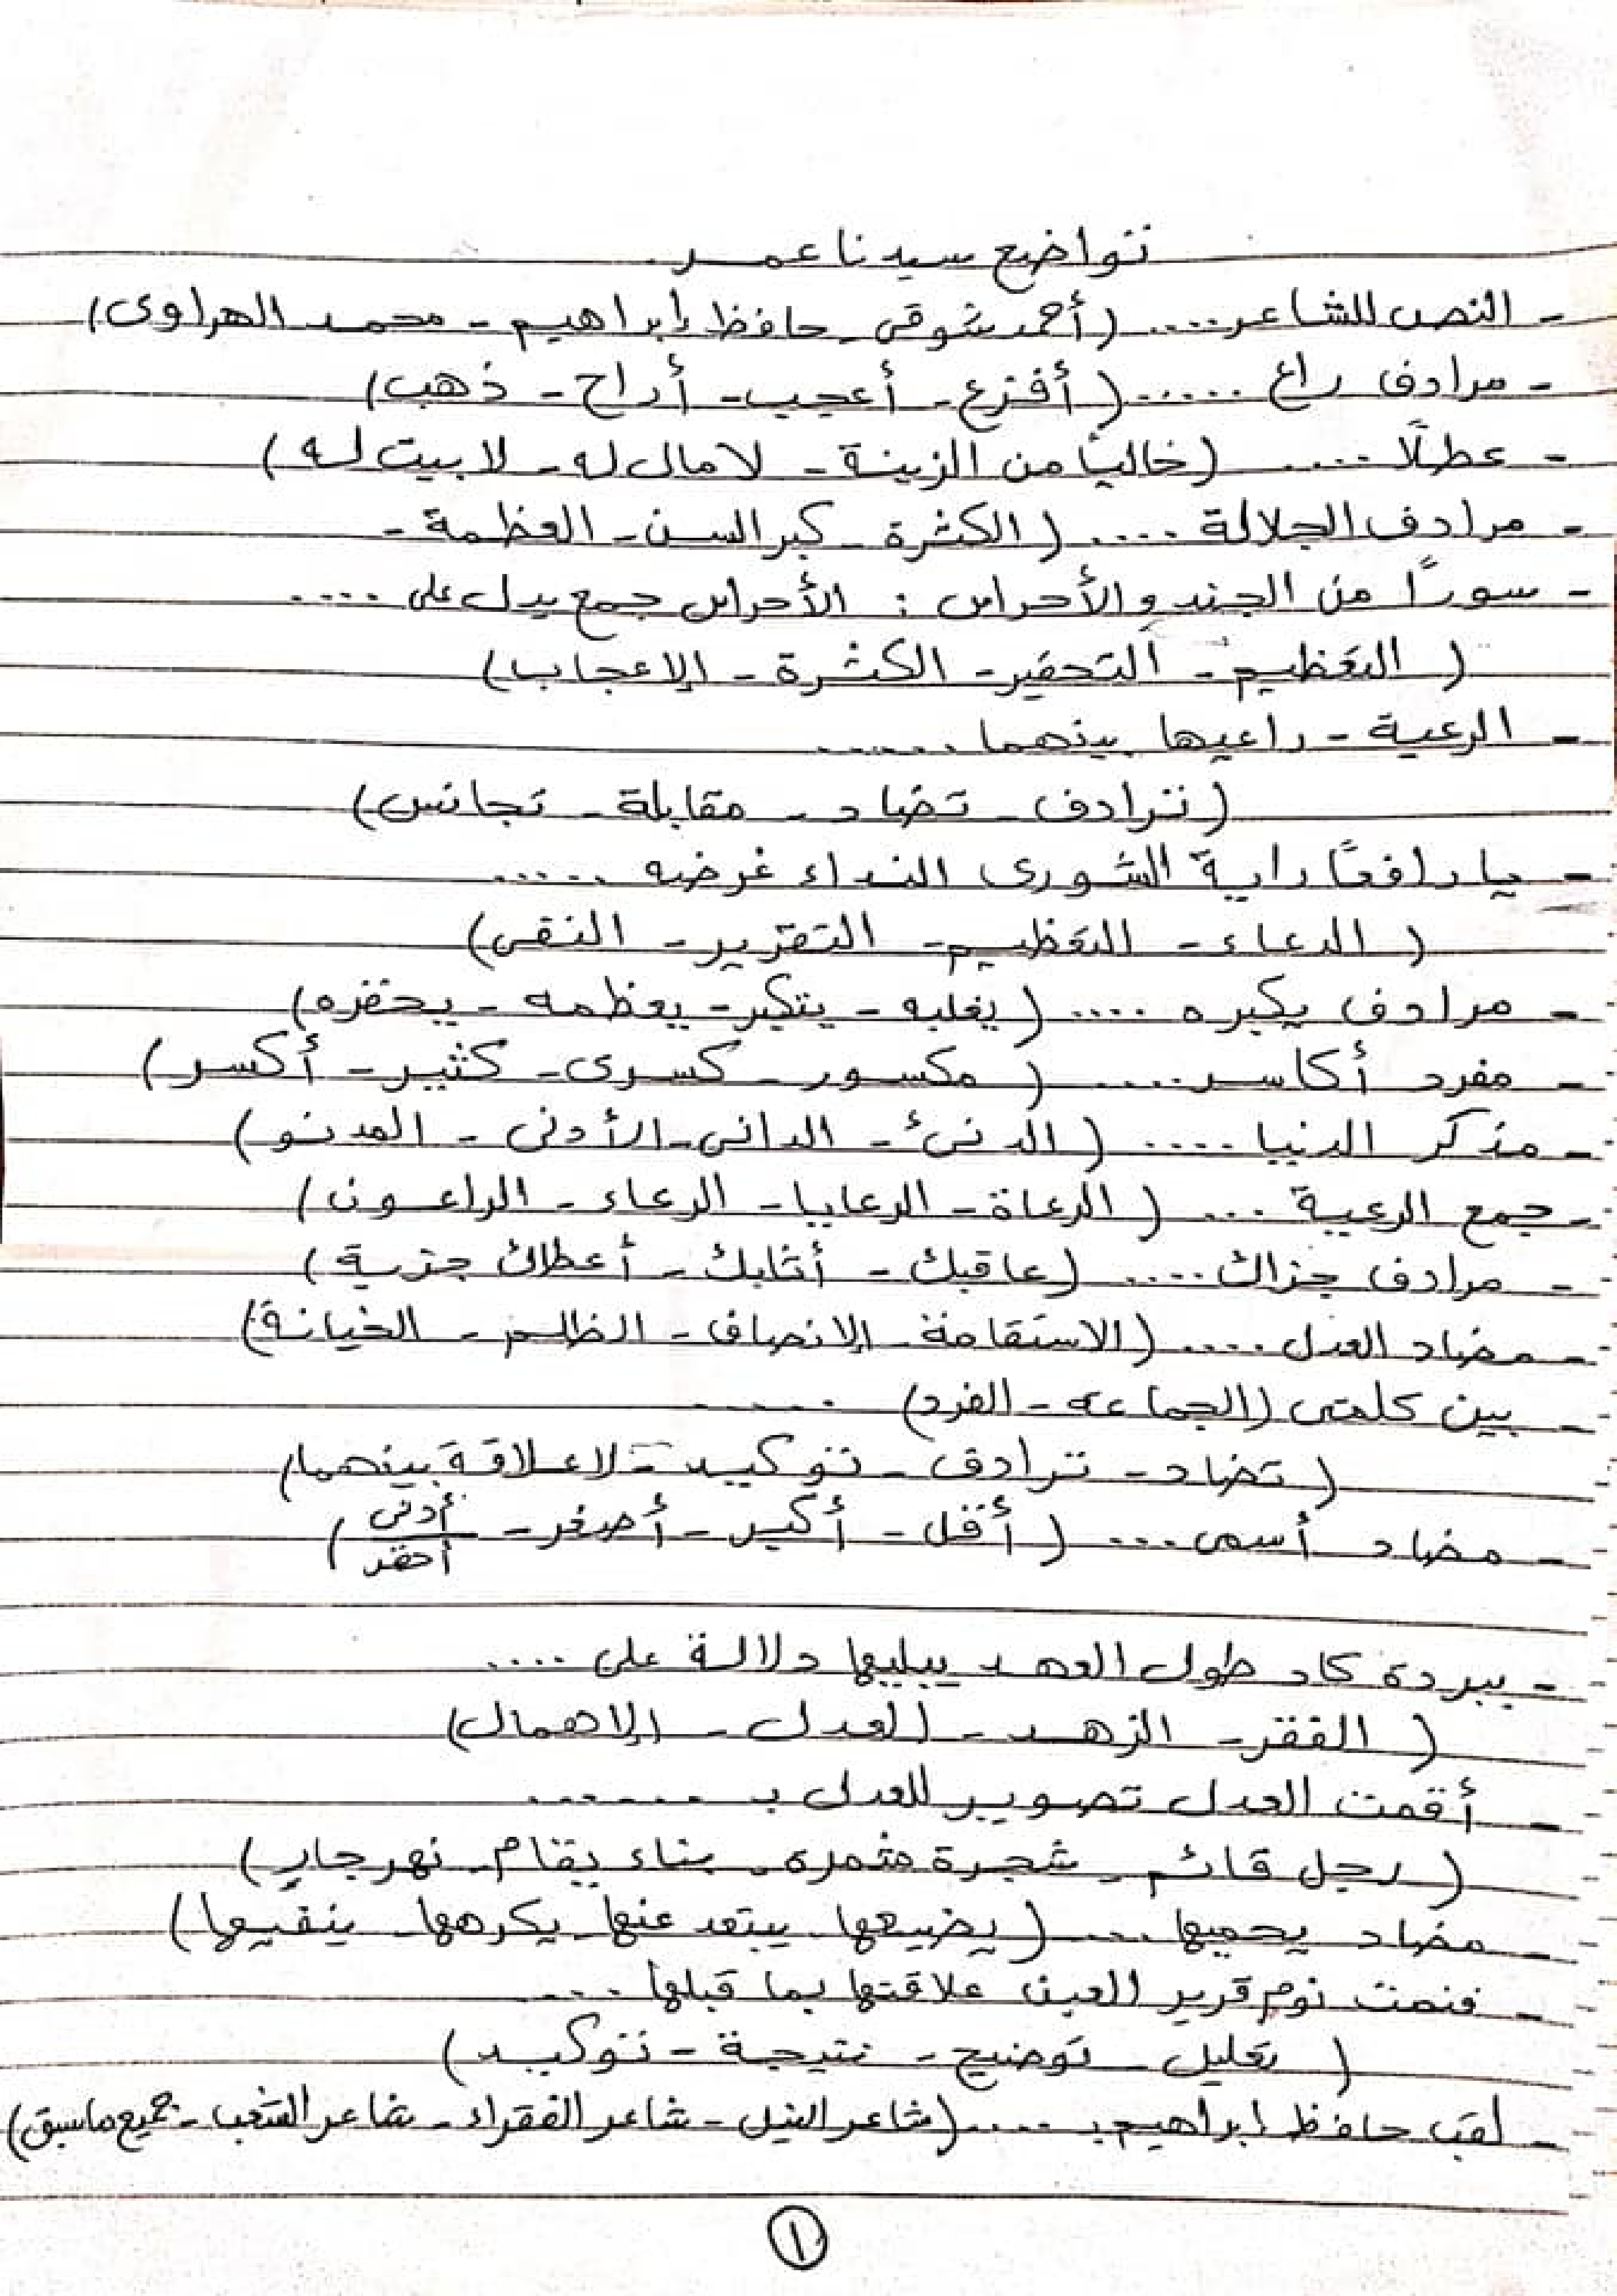 تواضع سيدنا عمر
- النص للشاعر .... (أحمد شوقى - حافظ إبراهيم - محمد الهراوى)
- مرادف راع ..... (أفزع - أعجب - أراح - ذهب)
- عطلًا .... (خاليًا من الزينة - لا مال له - لا بيت له)
- مرادف الجلالة .... (الكثرة - كبر السن - العظمة -
- سورًا من الجند والأحراس : الأحراس جمع يدل على ....
(التعظيم - التحقير - الكثرة - الإعجاب)
- الرعية - راعيها بينهما ......
(ترادف - تضاد - مقابلة - تجانس)
- يا رافعًا راية الشورى النداء غرضه .....
(الدعاء - التعظيم - التقرير - النفى)
- مرادف يكبره .... (يغلبه - يتكبر - يعظمه - يحقره)
- مفرد أكاسر .... (مكسور - كسرى - كثير - أكسر)
- مذكر الدنيا .... (الدنئ - الدانى - الأدنى - المدنو)
- جمع الرعية ... (الرعاة - الرعايا - الرعاء - الراعون)
- مرادف جزاك .... (عاقبك - أثابك - أعطاك جزية)
- مضاد العدل .... (الاستقامة - الإنصاف - الظلم - الخيانة)
- بين كلمتى (الجماعة - الفرد) .....
(تضاد - ترادف - توكيد - لا علاقة بينهما)
- مضاد أسمى ... (أقل - أكبر - أصغر - أدنى
أحقر)
- ببردة كاد طول العهد يبليها دلالة على ....
(الفقر - الزهد - العدل - الإهمال)
- أقمت العدل تصوير للعدل بـ ......
(رجل قائم - شجرة مثمره - بناء يقام - نهر جار)
- مضاد يحميها .... (يضيعها - يبتعد عنها - يكرهها - ينفيها)
- فنمت نوم قرير العين علاقتها بما قبلها ....
(تعليل - توضيح - نتيجة - توكيد)
- لقب حافظ ابراهيم بـ .... (شاعر النيل - شاعر الفقراء - شاعر الشعب - جميع ما سبق)
١